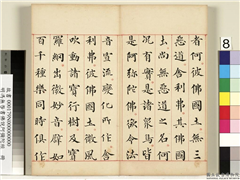 者何彼佛國土無三
惡道舍利弗其佛國
土尚無惡道之名何
況有實是諸眾鳥皆
是阿彌陀佛欲令法
音宣流變化所作舍
利弗彼佛國土微風
吹動諸寶行樹及寶
羅網出微妙音譬如
百千種樂同時俱作
8